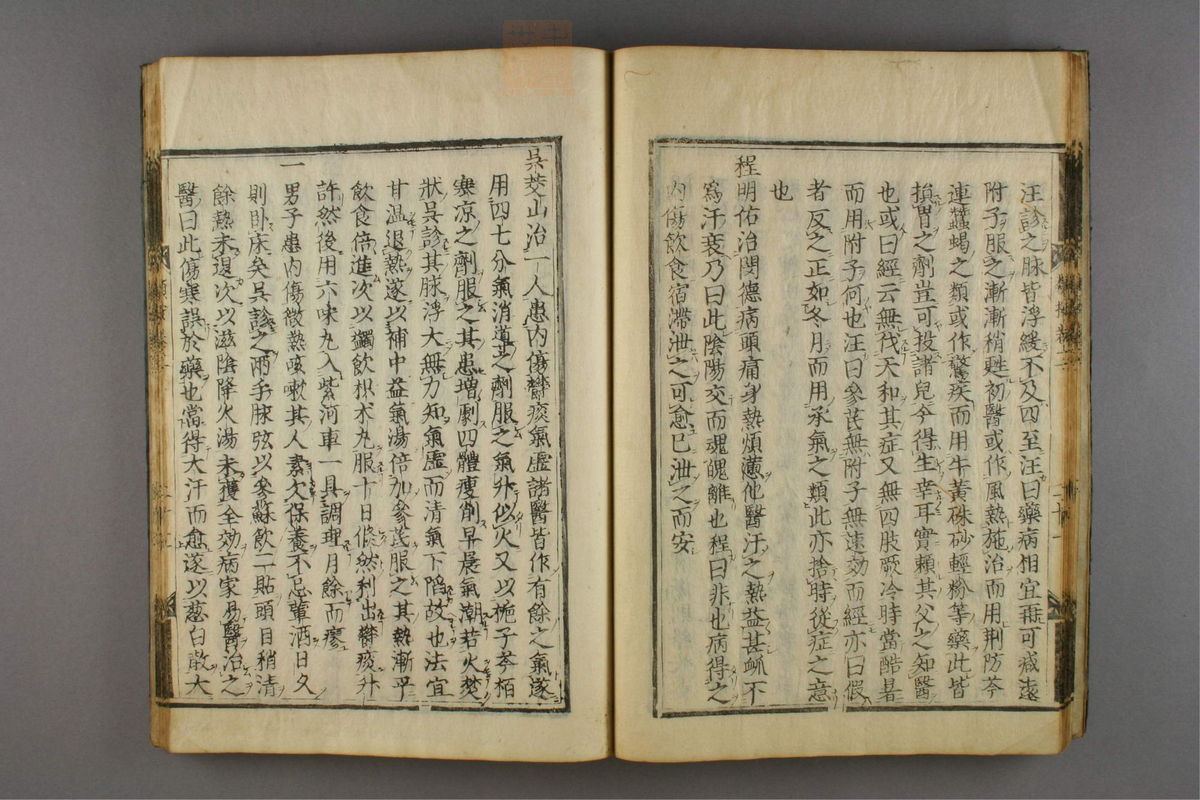 汪診之脉皆浮緩不及四至汪曰藥病相宜再可減去
附子服之漸漸稍甦初醫或作風熱施治而用荆防芩
連蠶蝎之類或作驚疾而用牛黃硃砂輕粉等藥此皆
損胃之劑豈可投諸兒今得生幸耳實賴其父之知醫
也或曰經云無伐天和其症又無四肢厥冷時當酷暑
而用附子何也汪曰參芪無附子無速効而經亦曰假
者反之正如冬月而用承氣之類此亦捨時從症之意
也
程明佑治閔德病頭痛身熱煩懣他醫汗之熱益甚衇不
爲汗衰乃曰此陰陽交而魂魄離也程曰非也病得之
內傷飲食宿滯泄之可愈已泄之而安
吳茭山治一人患內傷鬱痰氣虛諸醫皆作有餘之氣遂
用四七分氣消導之劑服之氣升似火又以梔子芩栢
寒凉之劑服之其患增劇四體瘦削早晨氣潮若火焚
狀吳診其脉浮大無力知氣虛而清氣下陷故也法宜
甘温退熱遂以補中益氣湯倍加參芪服之其熱漸平
飲食倍進次以蠲飲枳朮丸服十日倏然利出鬱痰升
許然後用六味丸入紫河車一具調理月餘而瘳
一男子患內傷微熱咳嗽其人素欠保養不忌葷酒日久
則卧床矣吳診之兩手脉弦以參蘇飲二貼頭目稍清
餘熱未退次以滋陰降火湯未獲全効病家易醫治之
醫曰此傷寒誤於藥也當得大汗而愈遂以葱白散大